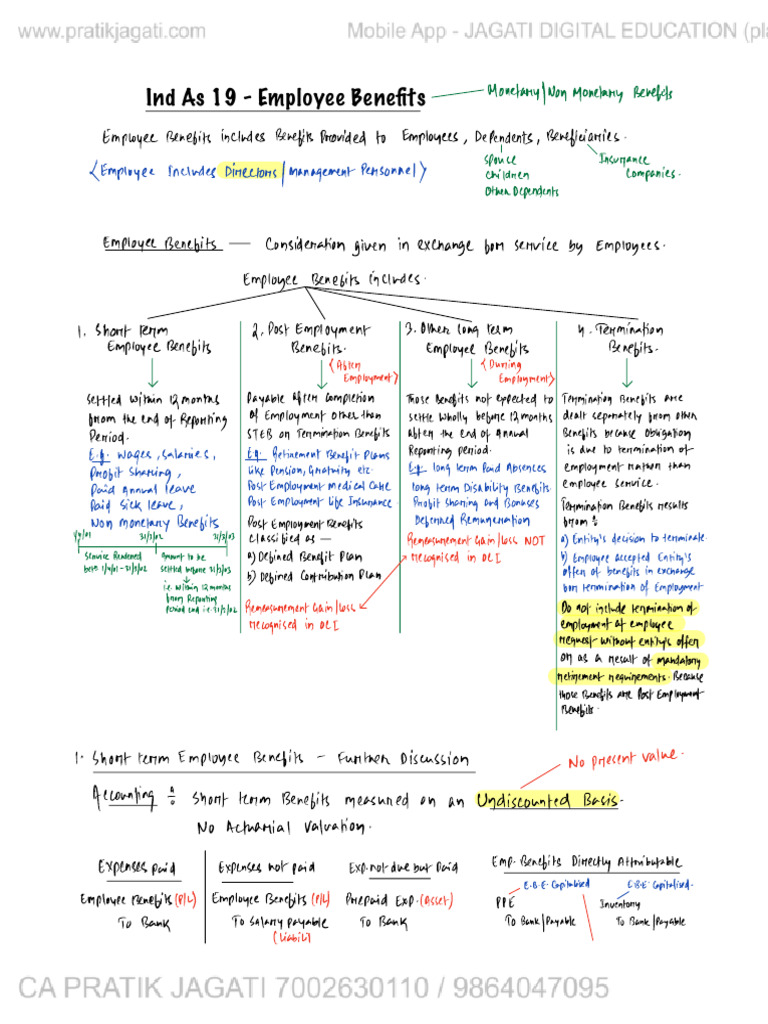 www.pratikjagati.com
Mobile App - JAGATI DIGITAL EDUCATION (pla
Ind As 19 - Employee Benefits
Monetary/Non Monetary Benefits
Employee Benefits includes Benefits Provided to Employees, Dependents, Beneficiarries.
Spouce
children
Other Dependents
Insurance
Companies.
<Employee Includes Directors/management Personnel>
Employee Benefits — Consideration given in exchange for service by Employees.
Employee Benefits includes.
1. Short term
Employee Benefits
Settled within 12 months
from the end of Reporting
Period.
E.g. wages, salaries,
Profit Sharing,
Paid annual leave
Paid sick leave,
Non monetary Benefits
1/4/01 31/3/02 31/3/03
Service Rendered
betn 1/4/01-31/3/02
Amount to be
settled before 31/3/03
i.e. within 12 months
from Reporting
period end i.e. 31/3/02
2. Post Employment
Benefits.
<After
Employment>
Payable after completion
of Employment other than
STEB or Termination Benefits
E.g. Retirement Benefit Plans
like Pension, Gratuity etc
Post Employment medical care
Post Employment life Insurance.
Post Employment Benefits
classified as —
a) Defined Benefit Plan
b) Defined Contribution Plan
Remeasurement Gain/loss
recognised in OCI
3. Other long term
Employee Benefits
<During
Employment>
Those Benefits not expected to
settle wholly before 12 months
after the end of Annual
Reporting period.
E.g. long term Paid Absences
long term Disability Benefits
Profit sharing and Bonuses
Deferred Remuneration
Remeasurement Gain/loss NOT
recognised in OCI
4. Termination
Benefits.
Termination Benefits are
dealt separately from other
Benefits because Obligation
is due to termination of
employment rather than
employee service.
Termination Benefits results
from ÷
a) Entity's decision to terminate.
b) Employee accepted Entity's
offer of benefits in exchange
for termination of Employment
Do not include termination of
employment at employee
request without entity's offer
or as a result of mandatory
retirement requirements. Because
those Benefits are Post Employment
Benefits.
1. Short term Employee Benefits - Further Discussion
No present value.
Accounting ÷ Short term Benefits measured on an Undiscounted Basis.
No Actuarial Valuation.
Expenses paid
Employee Benefits (P/L)
To Bank
Expenses not paid
Employee Benefits (P/L)
To Salary payable
(Liabili)
Exp. not due but Paid
Prepaid Exp. (Asset)
To Bank
Emp. Benefits Directly Attributable
E.B.E. Capitalised
PPE
To Bank/Payable
E.B.E. Capitalised.
Inventory
To Bank/Payable
CA PRATIK JAGATI 7002630110 / 9864047095